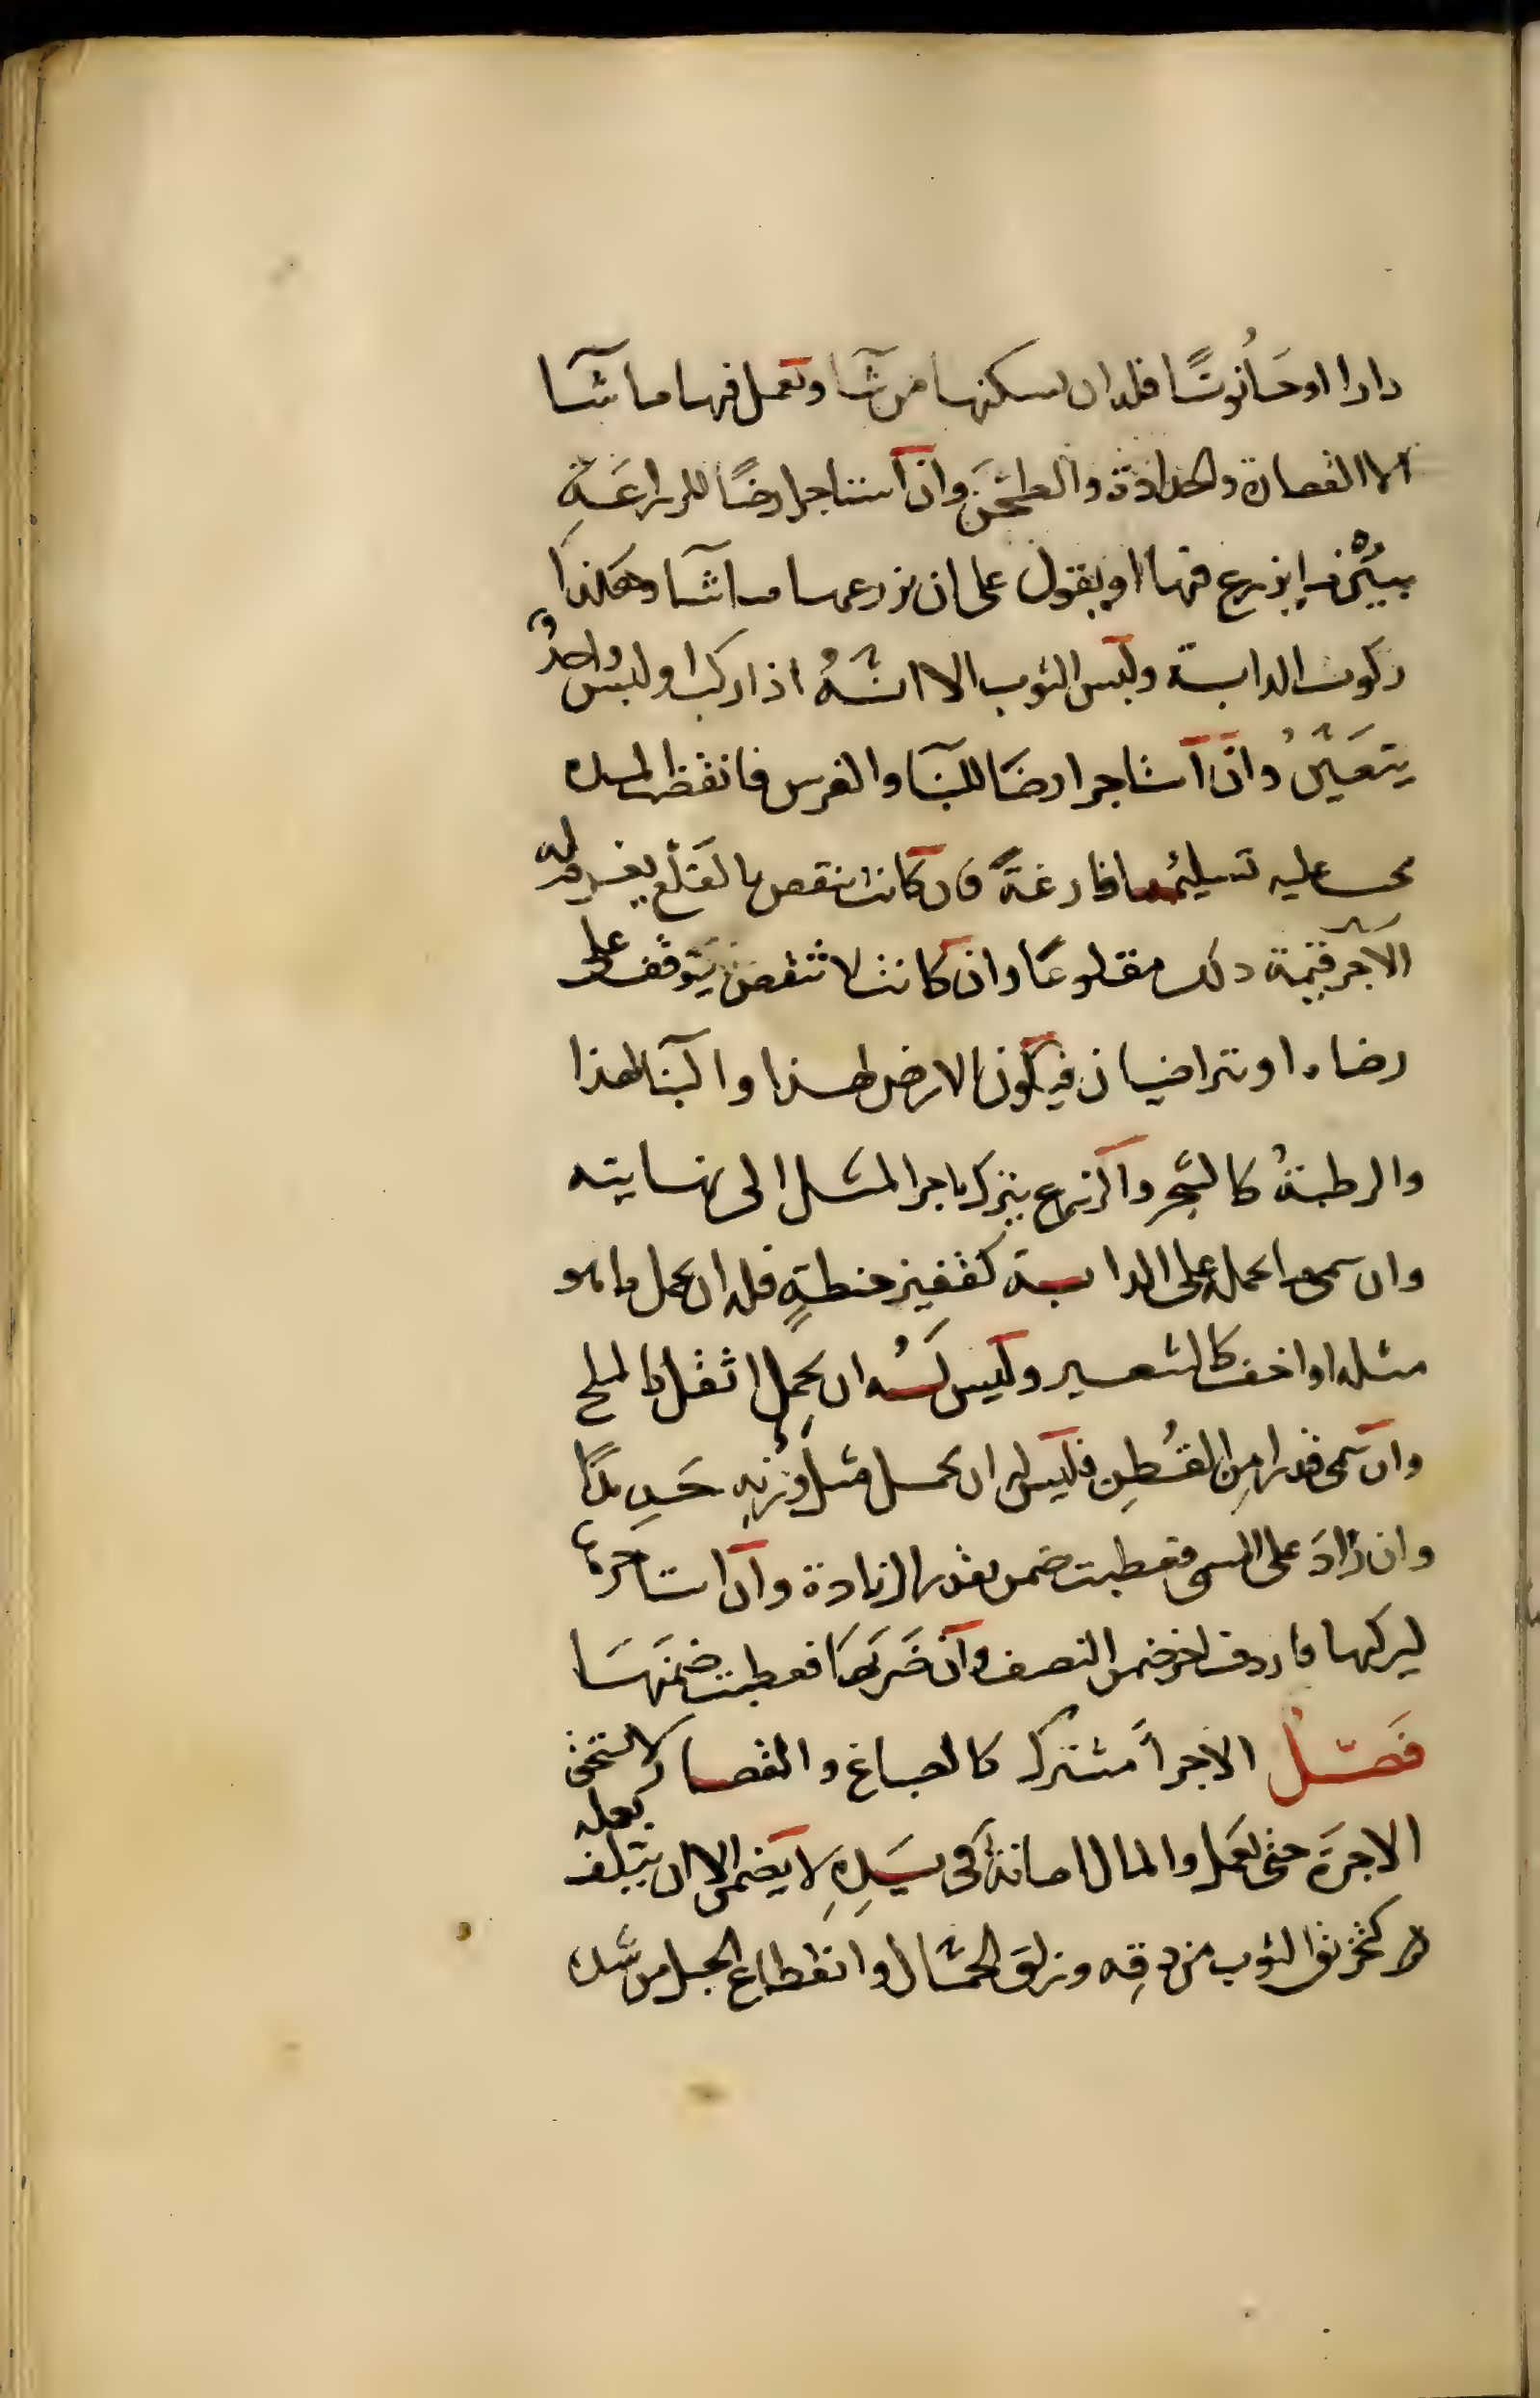 دارا او حَانُوتًا فله ان يسكنها من شا ويعمل فيها ما شا
الا القصارة والحدادة والطحن وان استاجر ارضًا للزراعَةِ
يبيّن ما يزرع فيها او يقول على ان يزرعها ما شا وهكذا
ركوب الدابة ولبس الثوب الا انّهُ اذا ركب او لبس واحدٌ
يتعَيّنُ وان استاجر ارضًا للبنا والغرس فانقضت المدة
يجب عليه تسليمُها فارغةً فان كانت تنقص بالقَلْع يغرم له
الآجر قيمة ذلك مقلوعًا وان كانت لا تنقص يتوقف على
رضاه او يتراضيان فيكون الارض لهذا والبنا لهذا
والرطبةُ كالشجر والزرع يترك باجر المثل الى نهايته
وان سمى ما يحمل على الدابة كقفيز حنطةٍ فله ان يحمل ما هو
مثله او اخف كالشعير وليس لَهُ ان يحمِل اثقل كالملح
وان سمى قدرا مِن القُطنِ فليس له ان يحمل مثل وَزنِهِ حَديدًا
وان زادَ على المسمى فعطبت ضمن بقدر الزيادة وان استاجرها
ليركبها فاردف اخر ضمن النصف وان ضَربَهَا فعطبت ضمنهَا
فَصْلٌ الاجراُ مشترك كالصباغ والقصار لا يستحق
الاجرَة حتى يعمل والمال امانةٌ في يَدِهِ لا يضمن الا ان يتلف بعمله
كتخريق الثوب من دقِه وزلق الحمّال وانقطاع الحبل من شده